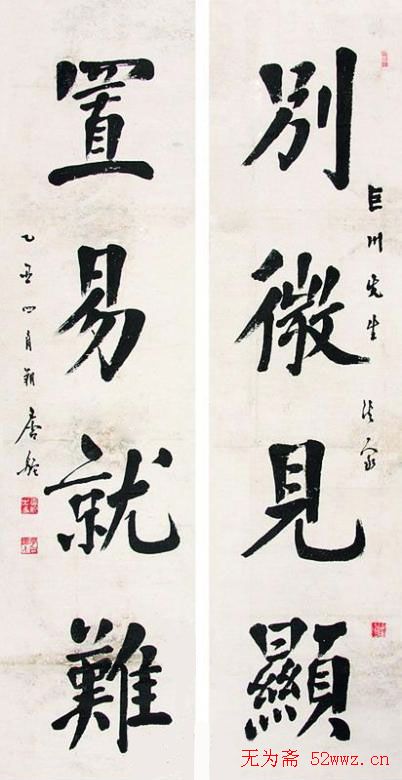 別微見顯
巨川先生 法家
置易就難
乙丑四月朔 唐駝
无为斋 52wwz.cn